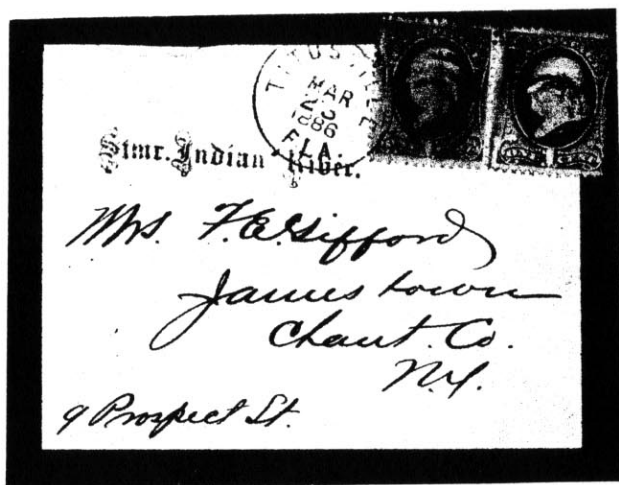 TITUSVILLE
MAR
1886
FLA.
Stmr. Indian River.
Mrs. F. E. Gifford
Jamestown
Chaut. Co.
N.Y.
9 Prospect St.